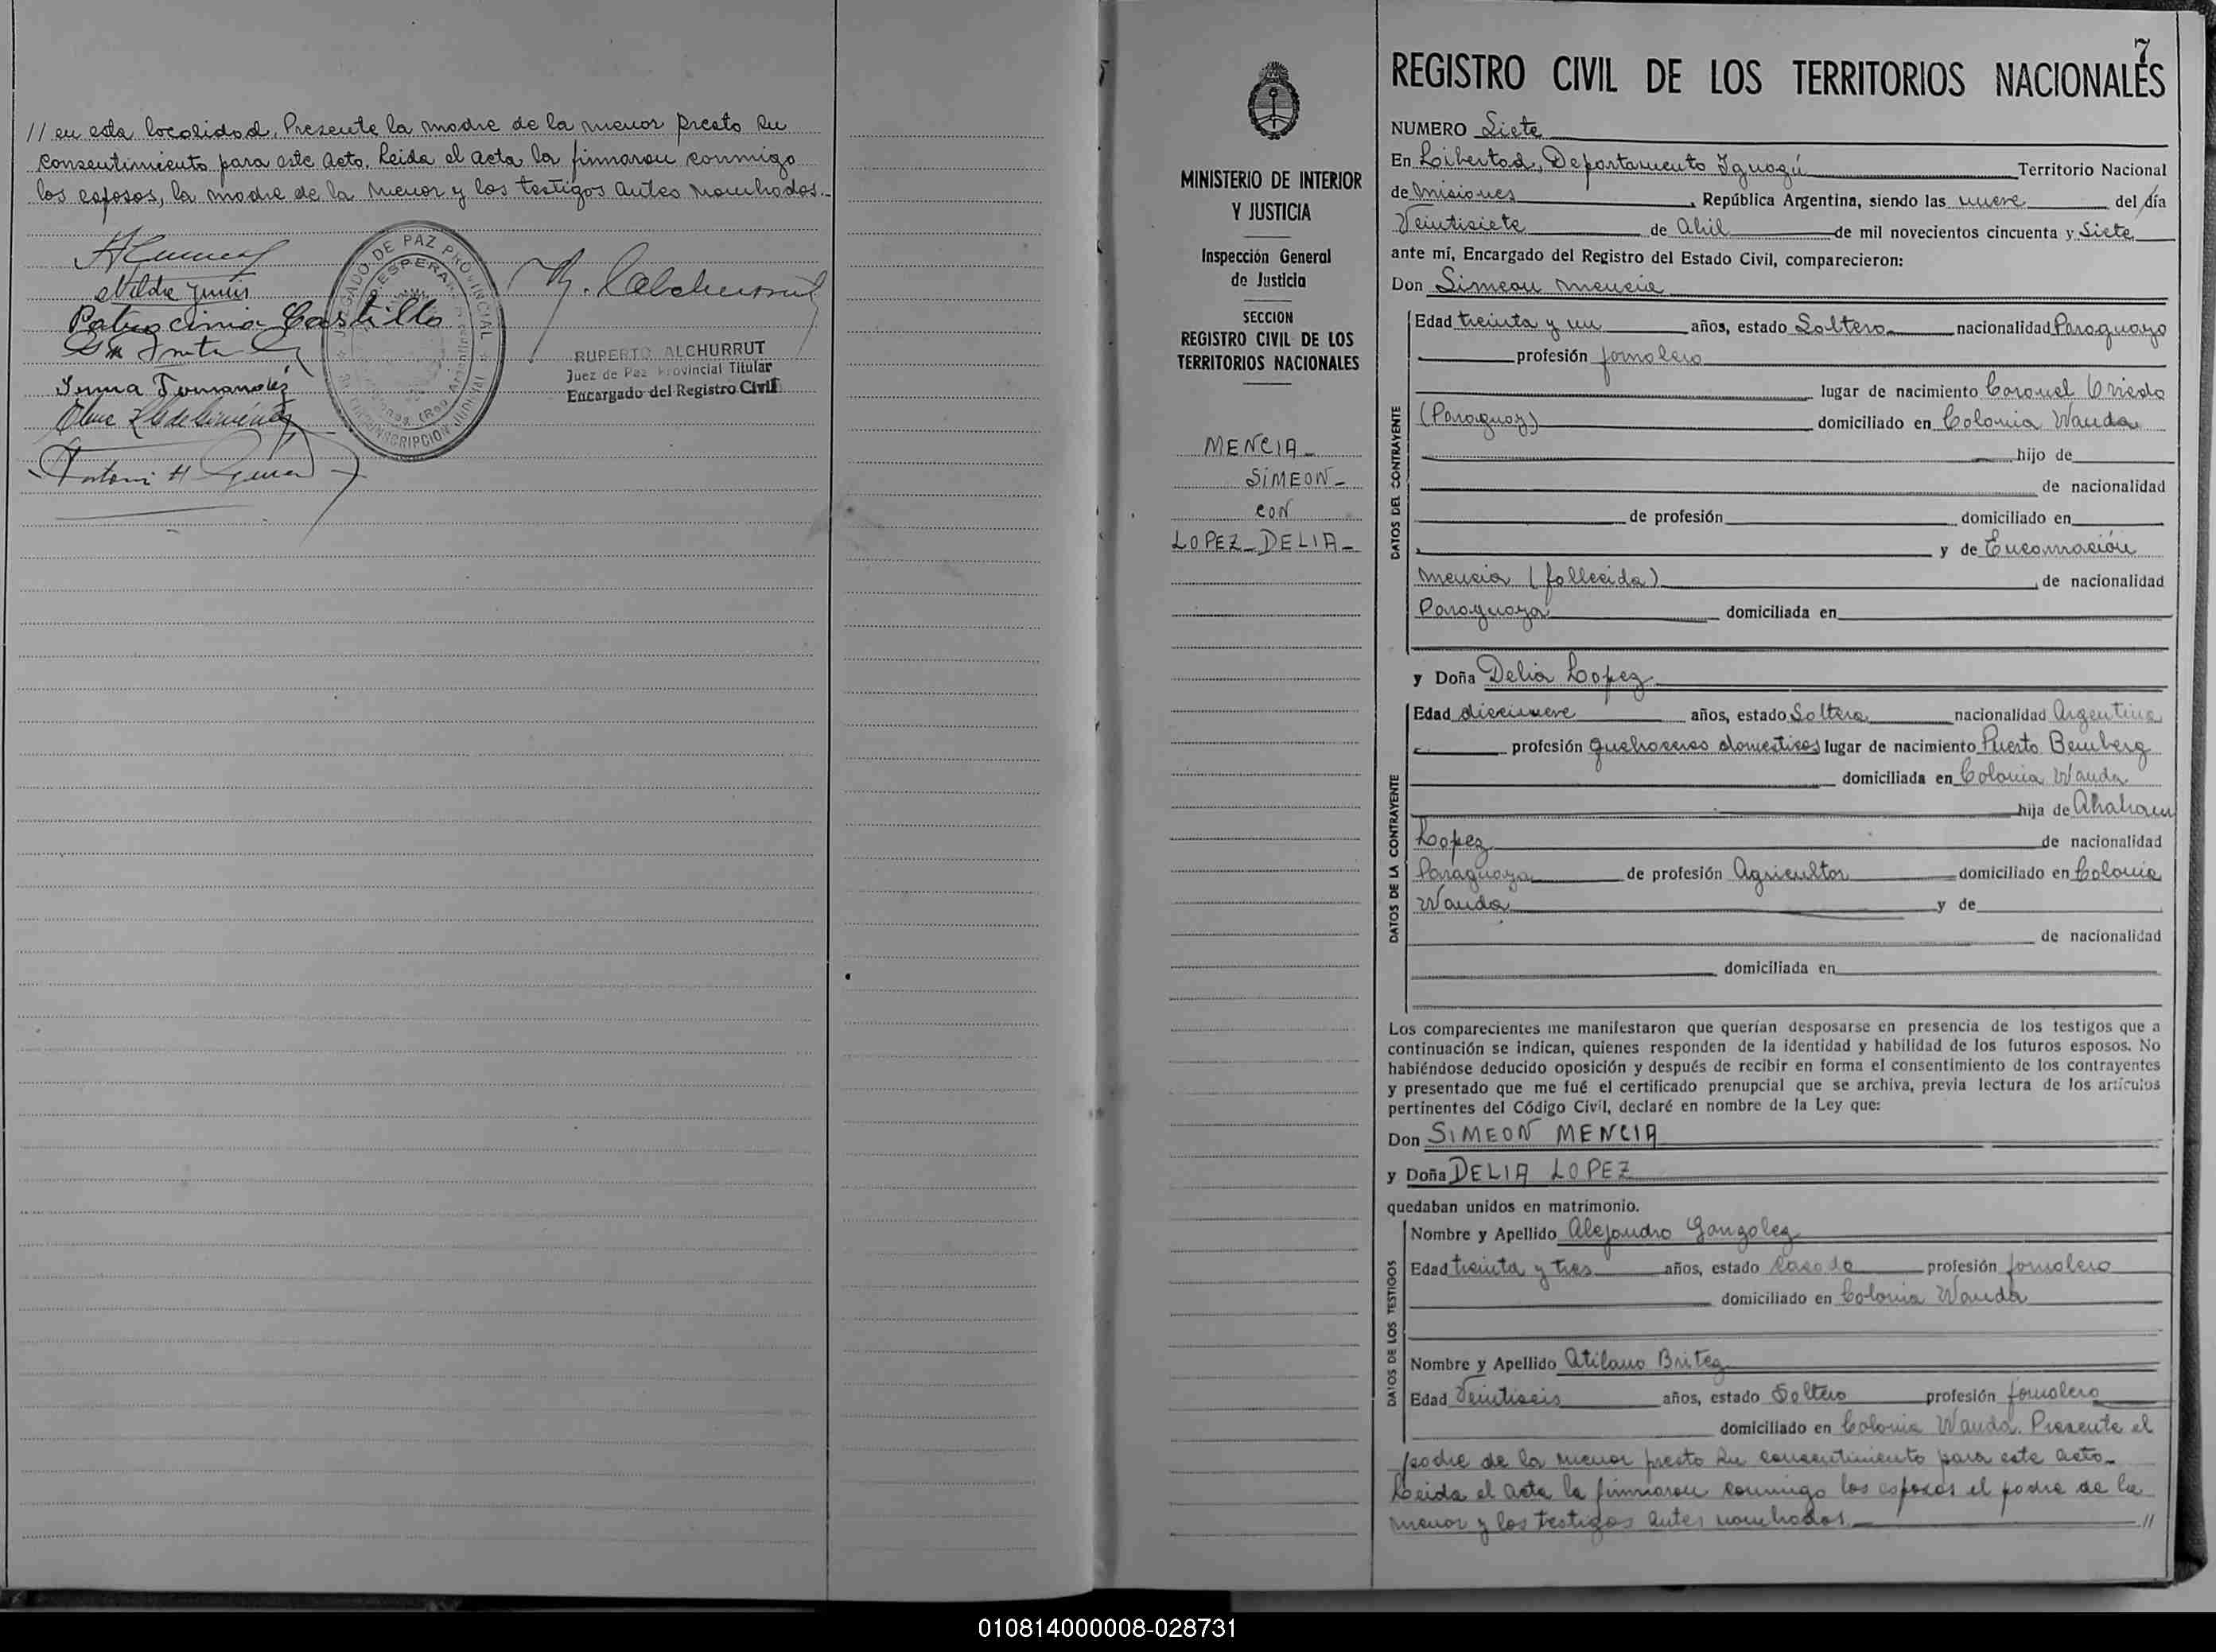 // en esta localidad. Presente la madre de la menor presto su
consentimiento para este acto. Leida el acta la firmaron conmigo
los esposos, la madre de la menor y los testigos antes nombrados.-
Patrocinia Castillo
JUZGADO DE PAZ PROVINCIAL
ESPERANZA
CIRCUNSCRIPCION JUDICIAL
RUPERTO CALCHURRUT
Juez de Paz Provincial Titular
Encargado del Registro Civil
MINISTERIO DE INTERIOR
Y JUSTICIA
Inspección General
de Justicia
SECCION
REGISTRO CIVIL DE LOS
TERRITORIOS NACIONALES
MENCIA-
SIMEON-
CON
LOPEZ-DELIA-
7
REGISTRO CIVIL DE LOS TERRITORIOS NACIONALES
NUMERO Siete
En Libertad, Departamento Iguazú Territorio Nacional
de Misiones, República Argentina, siendo las nueve del día
Veintisiete de Abril de mil novecientos cincuenta y Siete
ante mí, Encargado del Registro del Estado Civil, comparecieron:
Don Simeon Mencia
DATOS DEL CONTRAYENTE
Edad treinta y un años, estado Soltero nacionalidad Paraguayo
profesión jornalero
lugar de nacimiento Coronel Oviedo
(Paraguay) domiciliado en Colonia Wanda
hijo de
de nacionalidad
de profesión domiciliado en
y de Encarnación
Mencia (fallecida) de nacionalidad
Paraguaya domiciliada en
y Doña Delia Lopez
DATOS DE LA CONTRAYENTE
Edad diecinueve años, estado Soltera nacionalidad Argentina
profesión quehaceres domesticos lugar de nacimiento Puerto Bemberg
domiciliada en Colonia Wanda
hija de Abraham
Lopez de nacionalidad
Paraguaya de profesión Agricultor domiciliado en Colonia
Wanda y de
de nacionalidad
domiciliada en
Los comparecientes me manifestaron que querían desposarse en presencia de los testigos que a
continuación se indican, quienes responden de la identidad y habilidad de los futuros esposos. No
habiéndose deducido oposición y después de recibir en forma el consentimiento de los contrayentes
y presentado que me fué el certificado prenupcial que se archiva, previa lectura de los artículos
pertinentes del Código Civil, declaré en nombre de la Ley que:
Don SIMEON MENCIA
y Doña DELIA LOPEZ
quedaban unidos en matrimonio.
DATOS DE LOS TESTIGOS
Nombre y Apellido Alejandro Gonzalez
Edad treinta y tres años, estado Casado profesión jornalero
domiciliado en Colonia Wanda
Nombre y Apellido Atilano Britez
Edad Veintiseis años, estado Soltero profesión jornalero
domiciliado en Colonia Wanda. Presente el
padre de la menor presto su consentimiento para este acto-
Leida el acta la firmaron conmigo los esposos el padre de la
menor y los testigos antes nombrados.- //
010814000008-028731